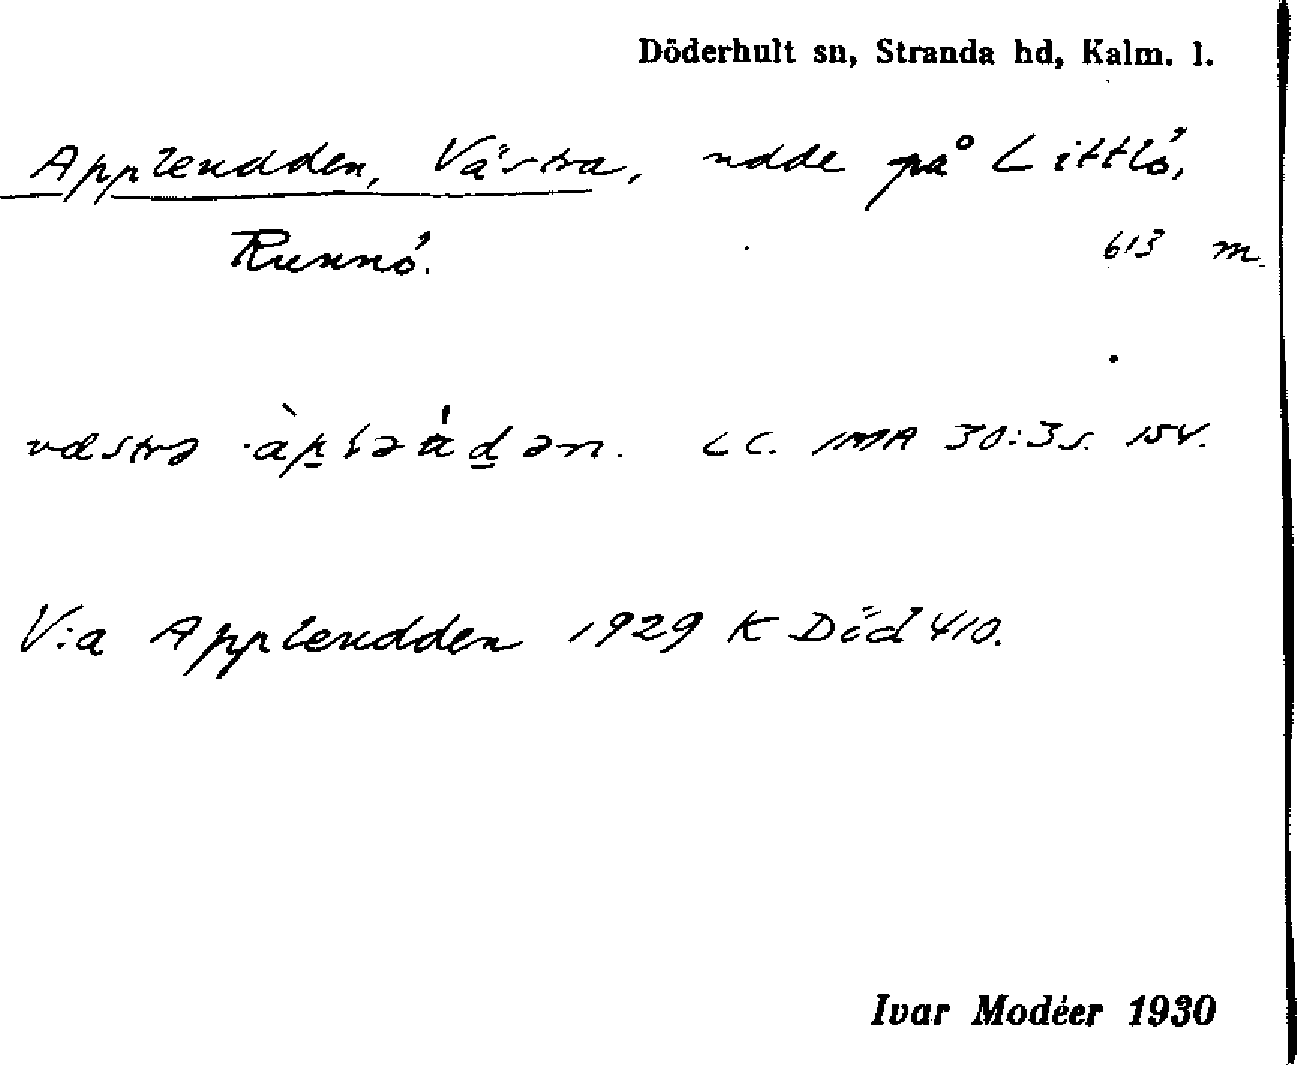 Döderhult sn, Stranda hd, Kalm. l.
Appleudden, Västra, udde på Littlö,
Runnö. 613 m.
væstrə àpləu̍dən. LC. IMA 30:3 s. 154.
V:a Appleudden 1929 K Död 410.
Ivar Modéer 1930